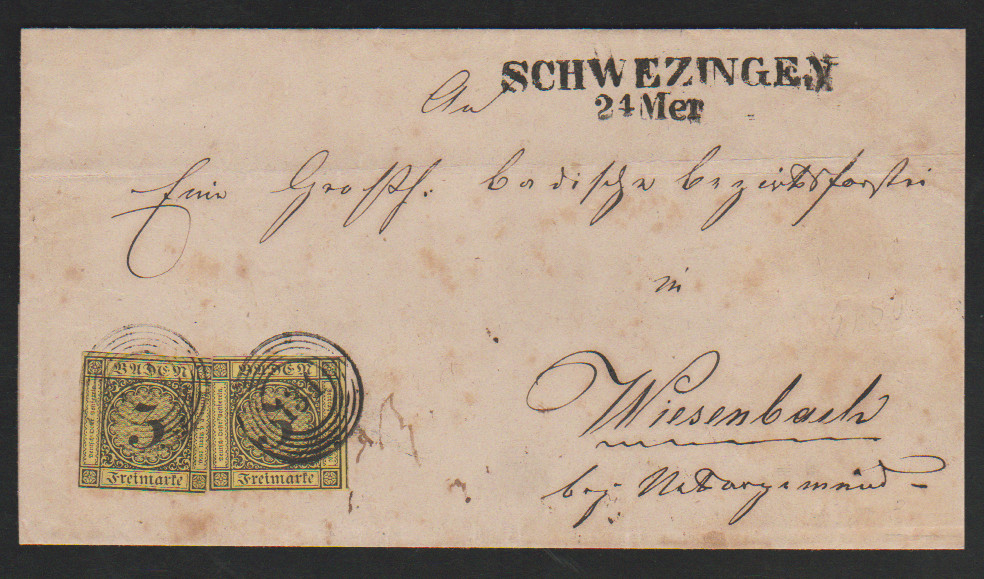 SCHWEZINGEN
24 Mer
An
Eine Großh: badische Bezirksforstei
in
Wiesenbach
bei Neckargemünd
BADEN BADEN
3 3
Freimarke Freimarke